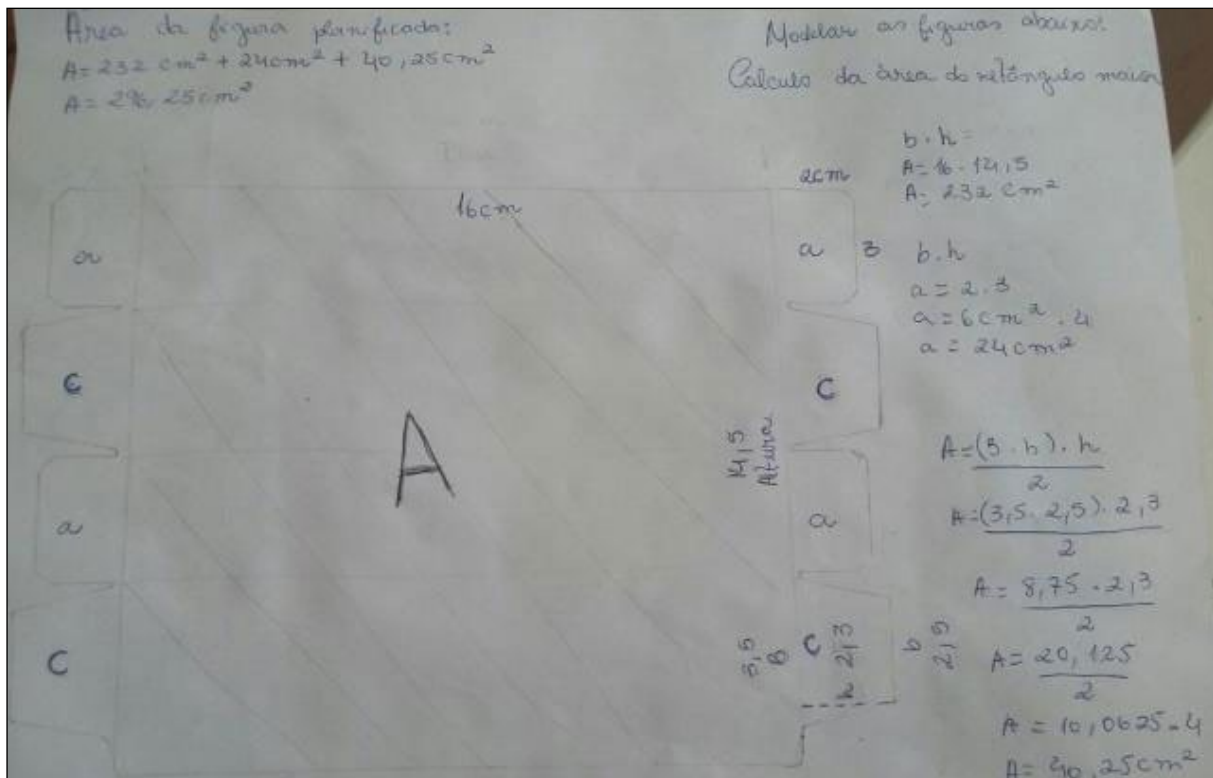 Área da figura planificada:
A= 232 cm² + 24cm² + 40,25cm²
A= 296,25cm²
Modelar as figuras abaixo:
Calculo da área do retângulo maior
b.h=
A= 16.14,5
A= 232 cm²
b.h
a = 2.3
a = 6cm².4
a = 24cm²
16cm
2cm
a
a
3
C
C
A
14,5
Altura
a
a
C
3,5
B
C
2,3
2
b
2,5
A=(B.b).h
2
A=(3,5.2,5).2,3
2
A= 8,75.2,3
2
A= 20,125
2
A= 10,0625.4
A= 40,25cm²